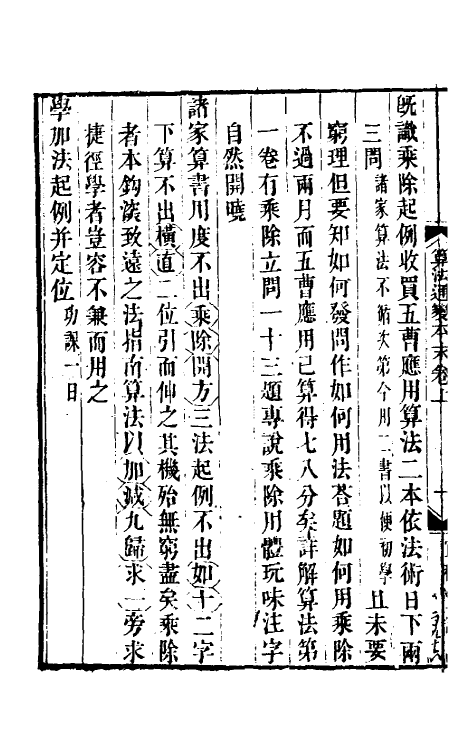 既識乘除起例收買五曹應用算法二本依法術日下兩
三問諸家算法不循次第今用二書以便初學且未要
窮理但要知如何發問作如何用法荅題如何用乘除
不過兩月而五曹應用已算得七八分矣詳解算法第
一卷有乘除立問一十三題專說乘除用體玩味注字
自然開曉
諸家算書用度不出乘除開方三法起例不出如十二字
下算不出橫直二位引而伸之其機殆無窮盡矣乘除
者本鈎深致遠之法指南算法以加減九歸求一旁求
捷徑學者豈容不兼而用之
學加法起例并定位功課一日
算法通變本末卷上
十